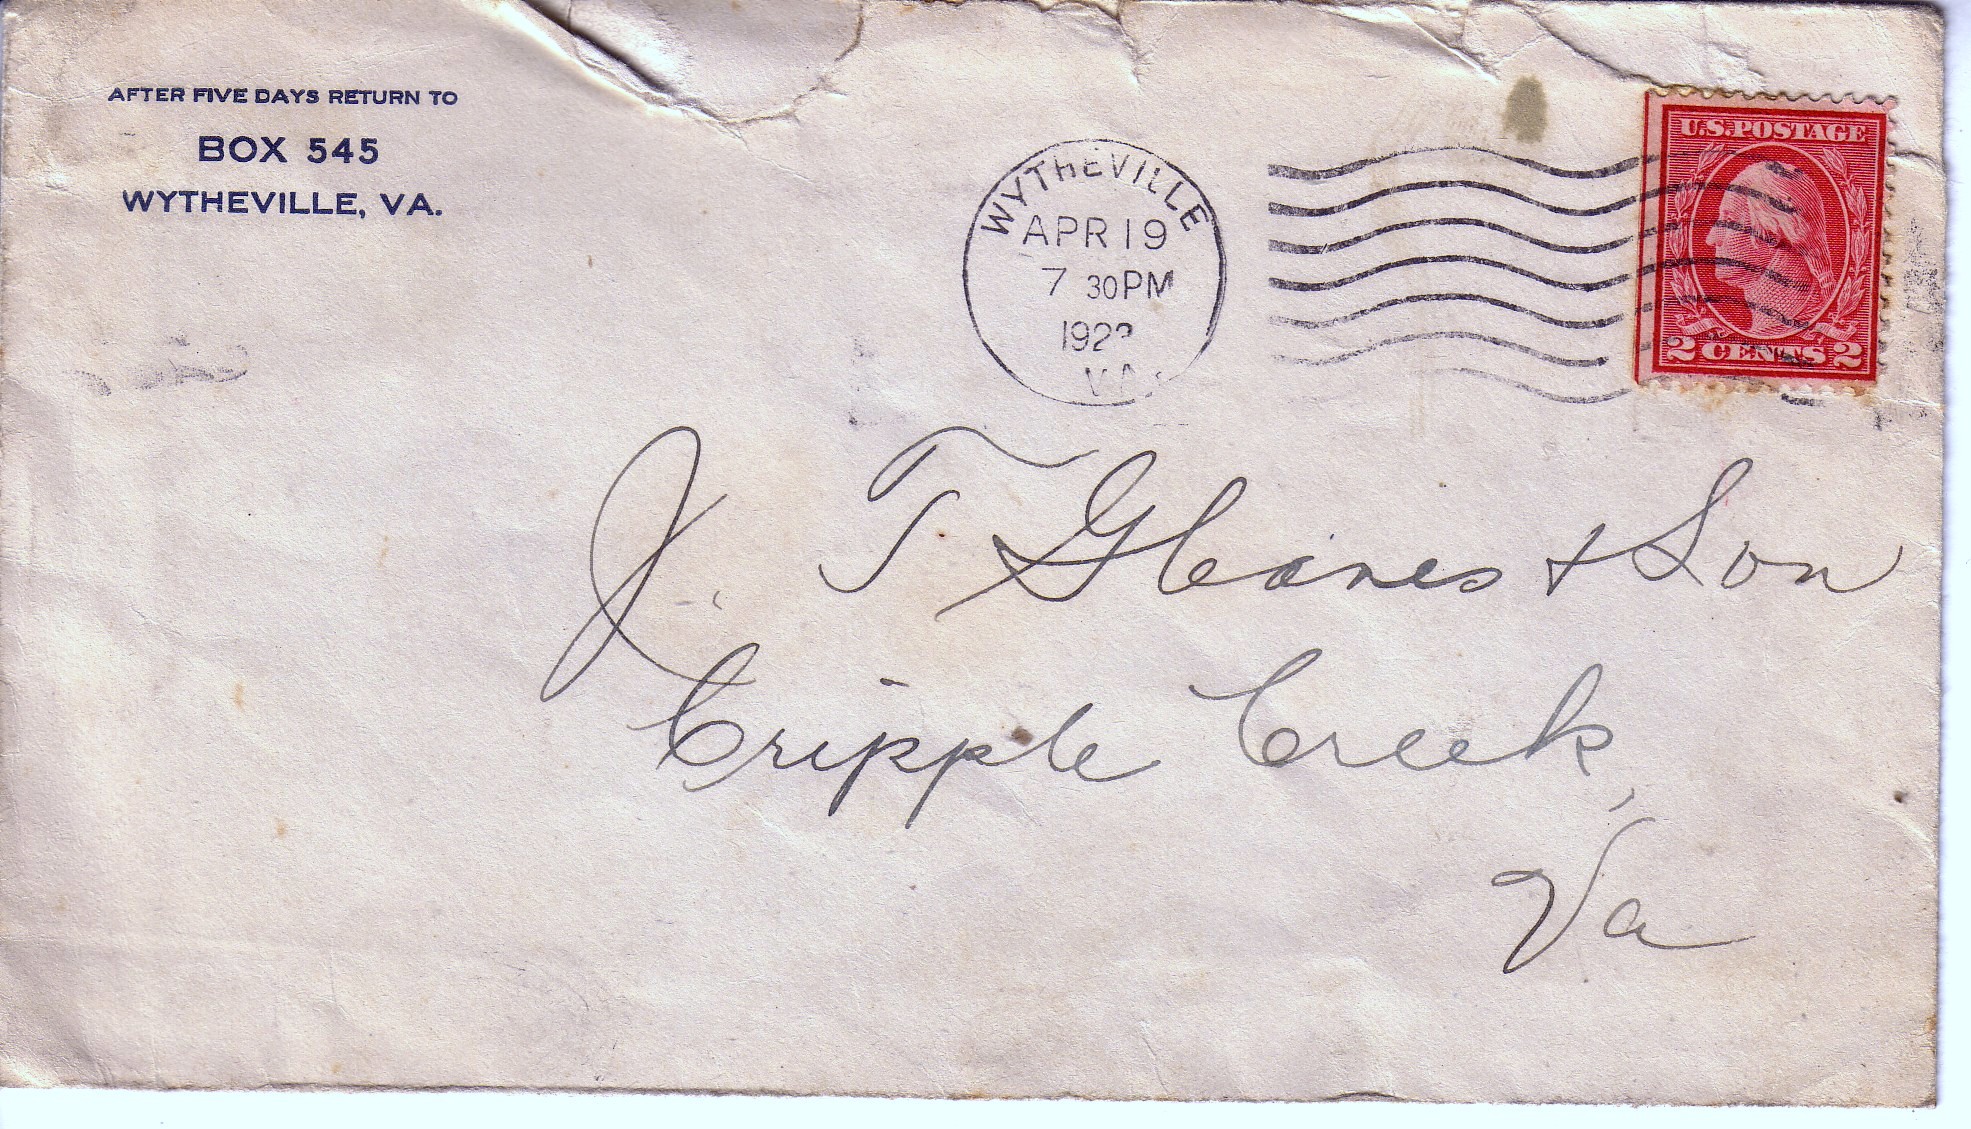 AFTER FIVE DAYS RETURN TO
BOX 545
WYTHEVILLE, VA.
WYTHEVILLE
APR 19
7 30PM
VA.
U.S. POSTAGE
2 CENTS 2
J. T. Gleaves & Son
Cripple Creek,
Va